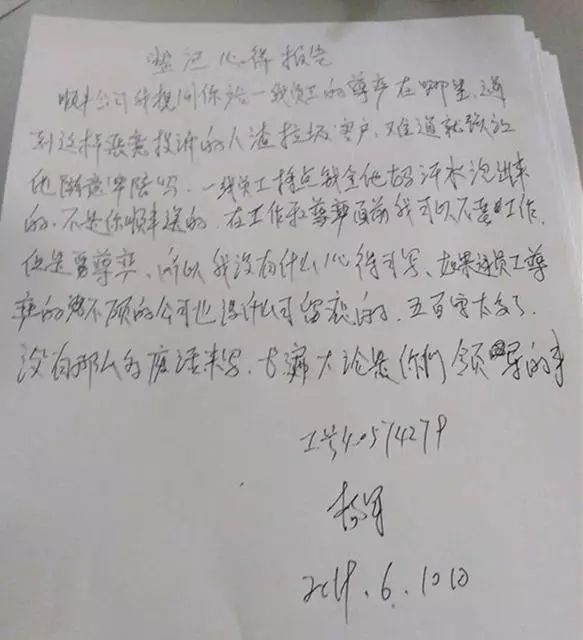 登记心得报告
顺丰公司我想问你给一线员工的尊严在哪里,遇
到这样恶意投诉的人渣垃圾客户,难道就能让
他随意牢陪吗。一线员工挣点钱全他妈汗水泡出来
的,不是你顺丰送的,在工作和尊严面前我可以不要工作,
但是要尊严,所以我没有什么心得可写、如果连员工尊
严的都不顾的公司也没什么可留恋的,五百字太多了,
没有那么多废话来写,长篇大论是你们领导的事
工号40574279
6.10日